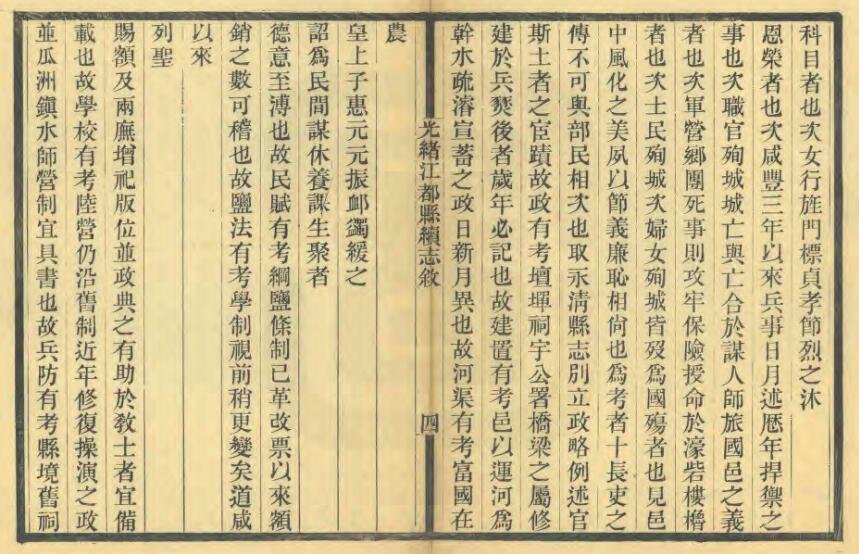 科目者也次女行旌門標貞孝節烈之沐
恩榮者也次咸豐三年以來兵事日月述厯年捍禦之
事也次職官殉城城亡與亡合於謀人師旅國邑之義
者也次軍營鄉團死事則攻牢保險授命於濠砦樓櫓
者也次士民殉城次婦女殉城皆歿為國殤者也見邑
中風化之美夙以節義廉恥相尙也為考者十長吏之
傳不可與部民相次也取永清縣志別立政略例述官
斯土者之宦蹟故政有考壇墠祠宇公署橋梁之屬修
建於兵燹後者歲年必記也故建置有考邑以運河為
幹水疏濬宣蓄之政日新月異也故河渠有考富國在
光緒江都縣續志敘
四
農
皇上子惠元元振衈蠲緩之
詔為民間謀休養謀生聚者
德意至溥也故民賦有考綱鹽條制已革改票以來額
銷之數可稽也故鹽法有考學制視前稍更變矣道咸
以來
列聖
賜額及兩廡增祀版位並政典之有助於敎士者宜備
載也故學校有考陸營仍沿舊制近年修復操演之政
並瓜洲鎭水師營制宜具書也故兵防有考縣境舊祠